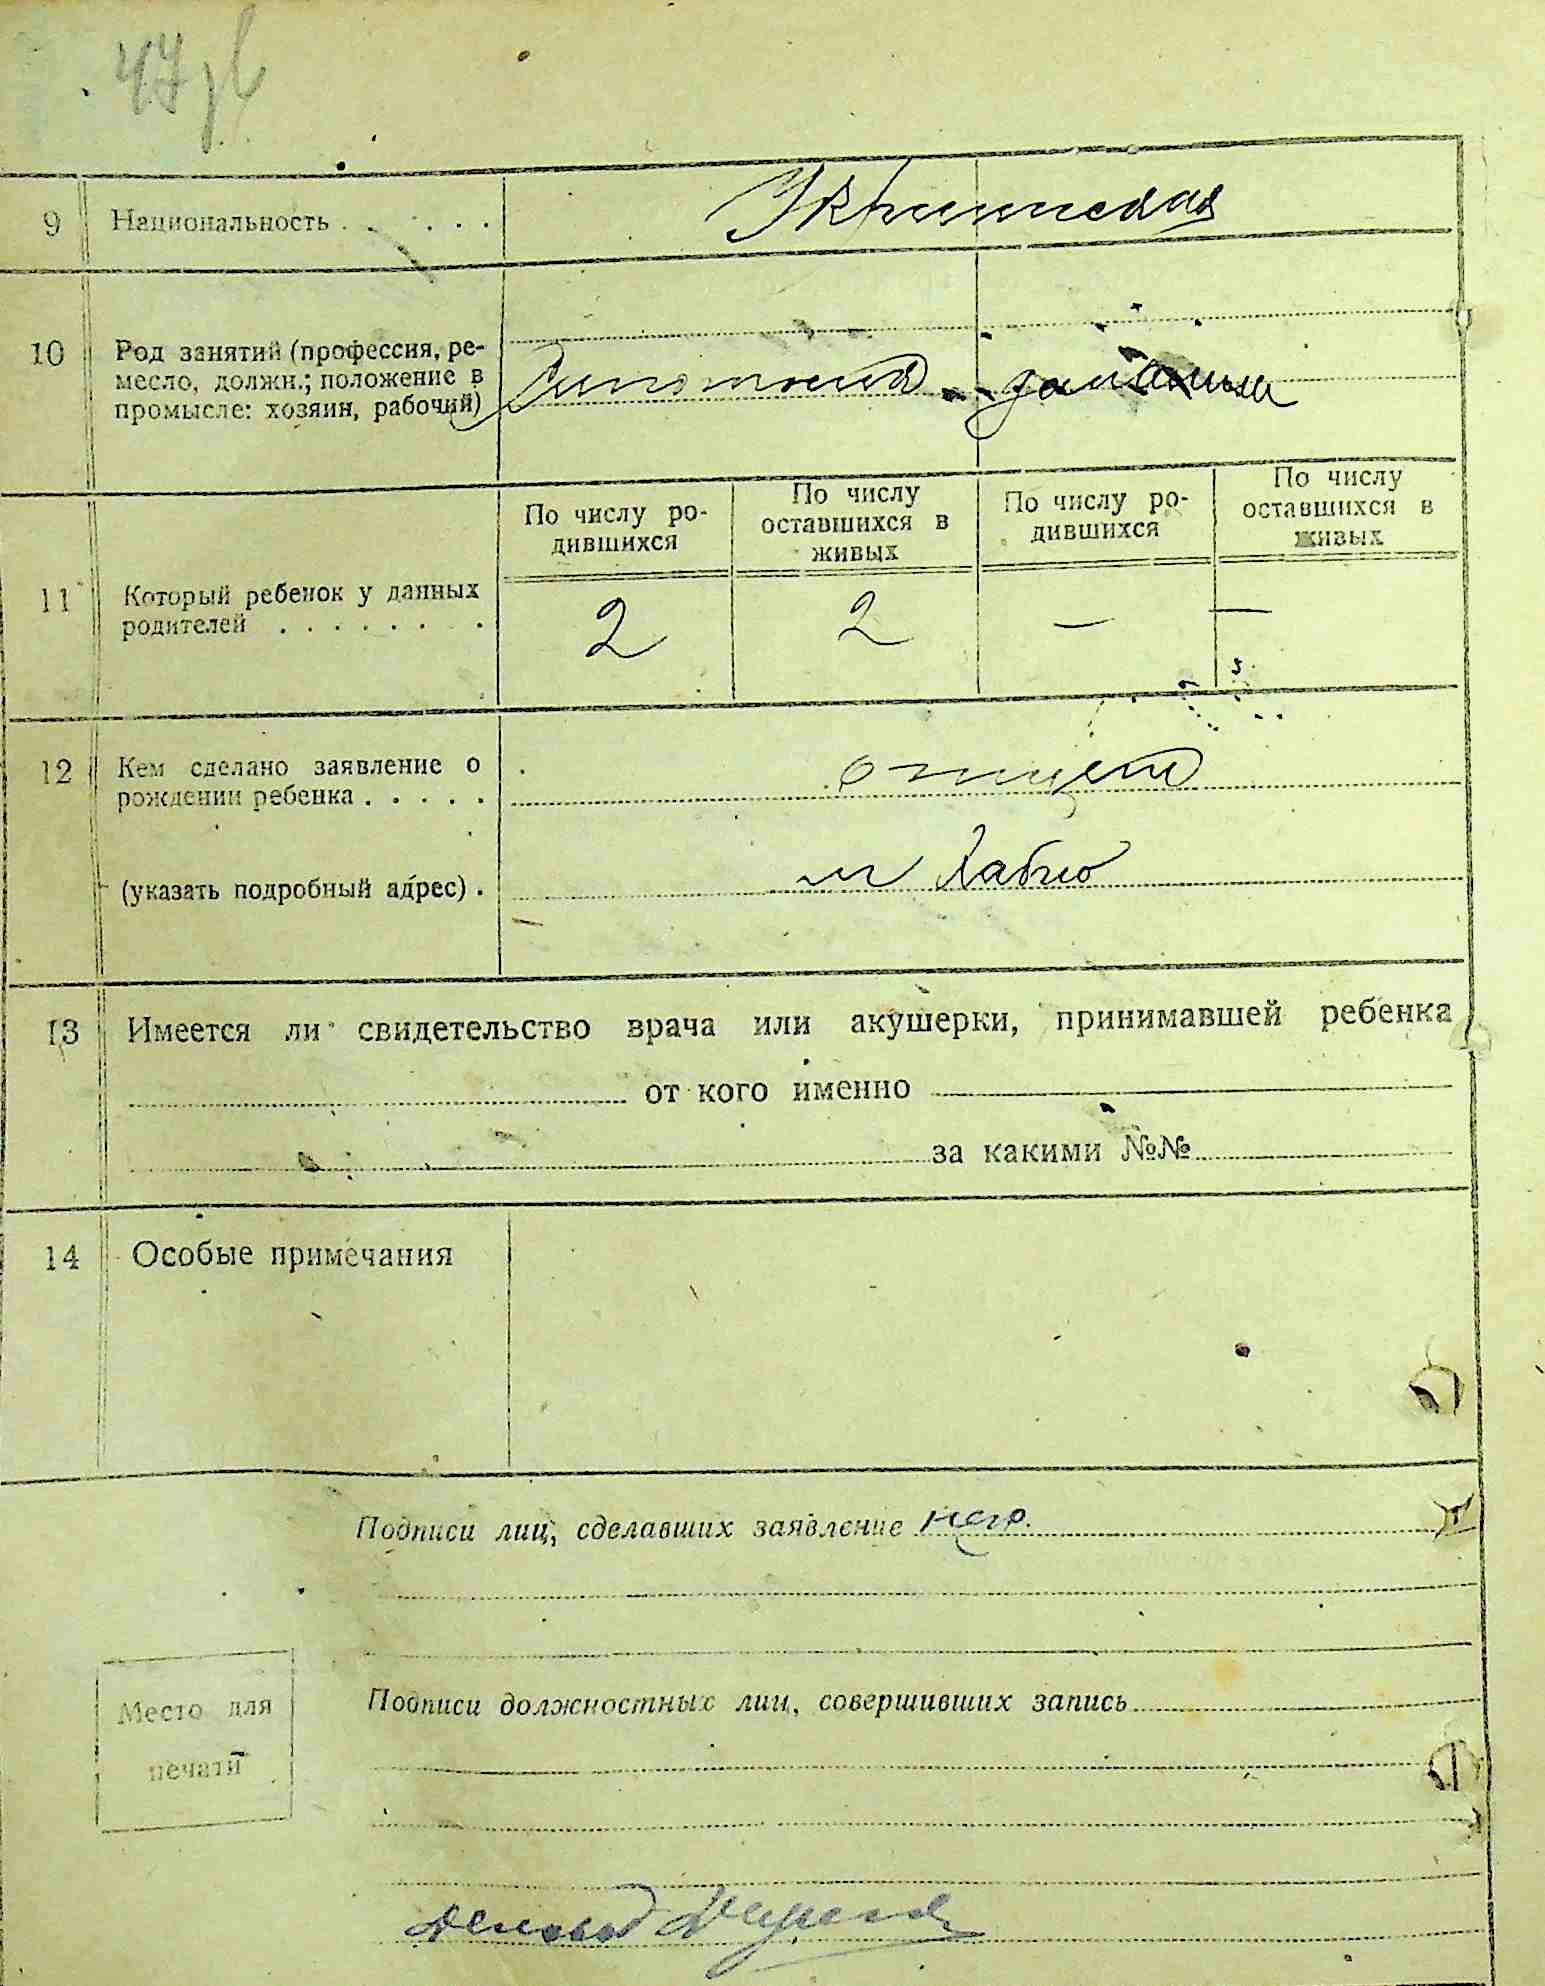 47
9 Национальность . . . . . . Украинская
10 Род занятий (профессия, ре-
месло, должн.; положение в
промысле: хозяин, рабочий)
По числу ро-
дившихся
По числу
оставшихся в
живых
По числу ро-
дившихся
По числу
оставшихся в
живых
11 Который ребенок у данных
родителей . . . . . . . 2 2 — —
12 Кем сделано заявление о
рождении ребенка . . . . . отцем
(указать подробный адрес) . м Хабно
13 Имеется ли свидетельство врача или акушерки, принимавшей ребенка
от кого именно
за какими №№
14 Особые примечания
Подписи лиц, сделавших заявление негр.
Место для
печати
Подписи должностных лиц, совершивших запись